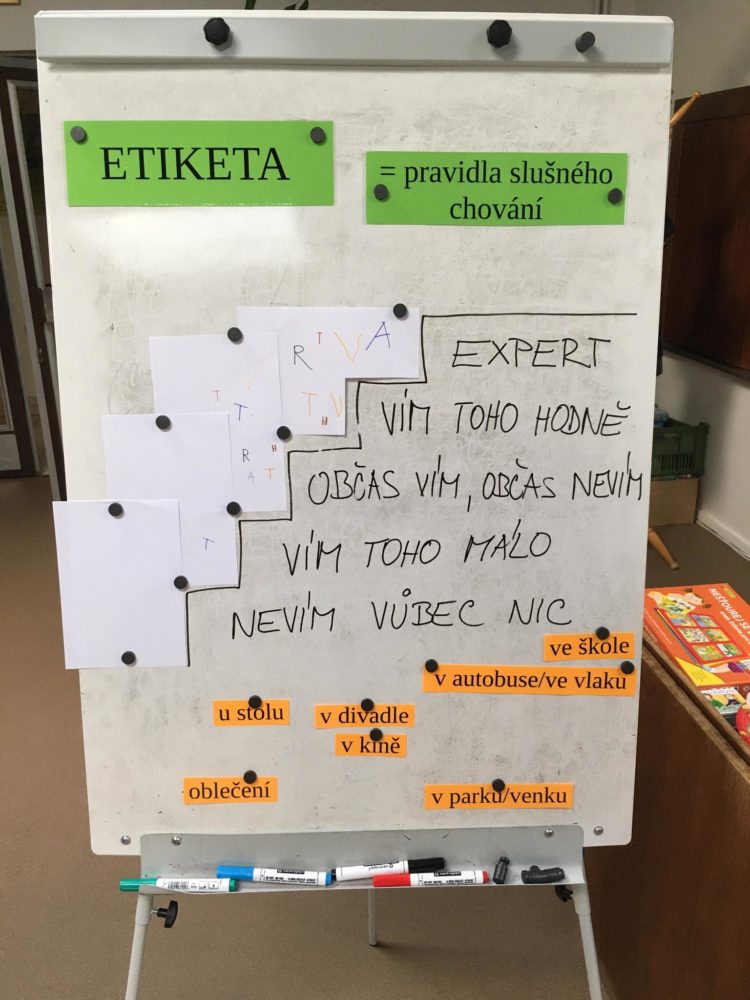 ETIKETA
= pravidla slušného
chování
R T V A
V T T H V
T R H A T
T
EXPERT
VÍM TOHO HODNĚ
OBČAS VÍM, OBČAS NEVÍM
VÍM TOHO MÁLO
NEVÍM VŮBEC NIC
ve škole
v autobuse/ve vlaku
u stolu
v divadle
v kině
oblečení
v parku/venku
NESTOUREJ SE